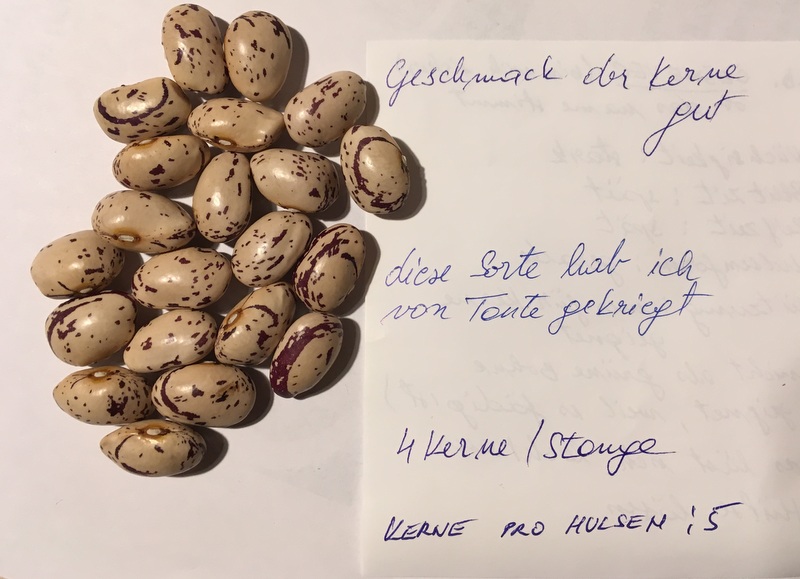 Geschmack der Kerne
gut
diese Sorte hab ich
von Tante gekriegt
4 Kerne / Stange
KERNE PRO HULSEM : 5